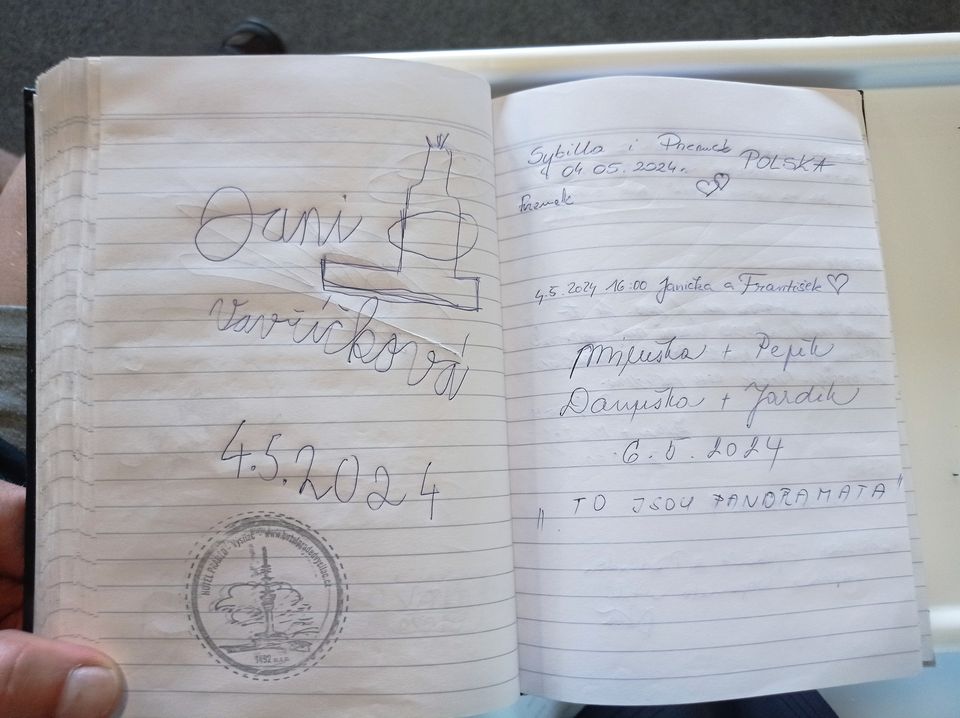 Vavříčková
4.5.2024
HOTEL PRADĚD - Vysílač - www.hotelpradedvysilac.cz
1492 m.n.m.
Sybilla i Przemek POLSKA
04.05.2024r.
Przemek
4.5.2024 16:00 Janička a František
Miluška + Pepík
Danuška + Jardík
6.5.2024
„TO JSOU PANORAMATA"